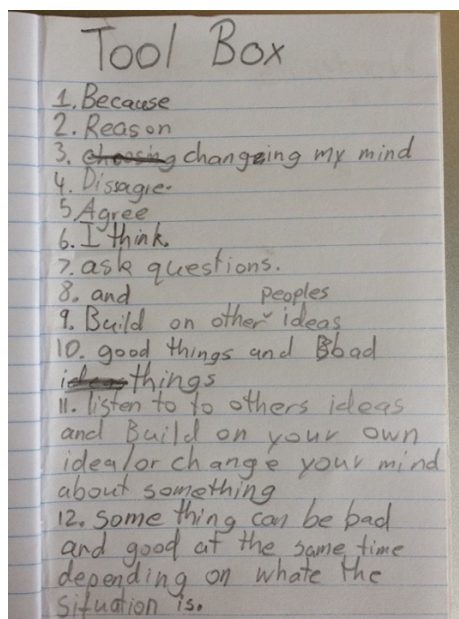 Tool Box
1. Because
2. Reason
3. choosing changing my mind
4. Dissagie.
5 Agree
6. I think.
7. ask questions.
8. and
9. Build on other peoples ideas
10. good things and Bbad
ideas things
11. listen to to others ideas
and Build on your own
idea/or change your mind
about something
12. some thing can be bad
and good at the same time
depending on whate the
situation is.